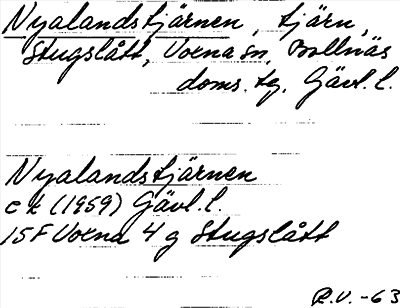 Nyalandstjärnen, tjärn,
Stugslått, Voxna sn, Bollnäs
doms. tg, Gävl. l.
Nyalandstjärnen
ek (1959) Gävl. l.
15F Voxna 4 g Stugslått
R.V. -63